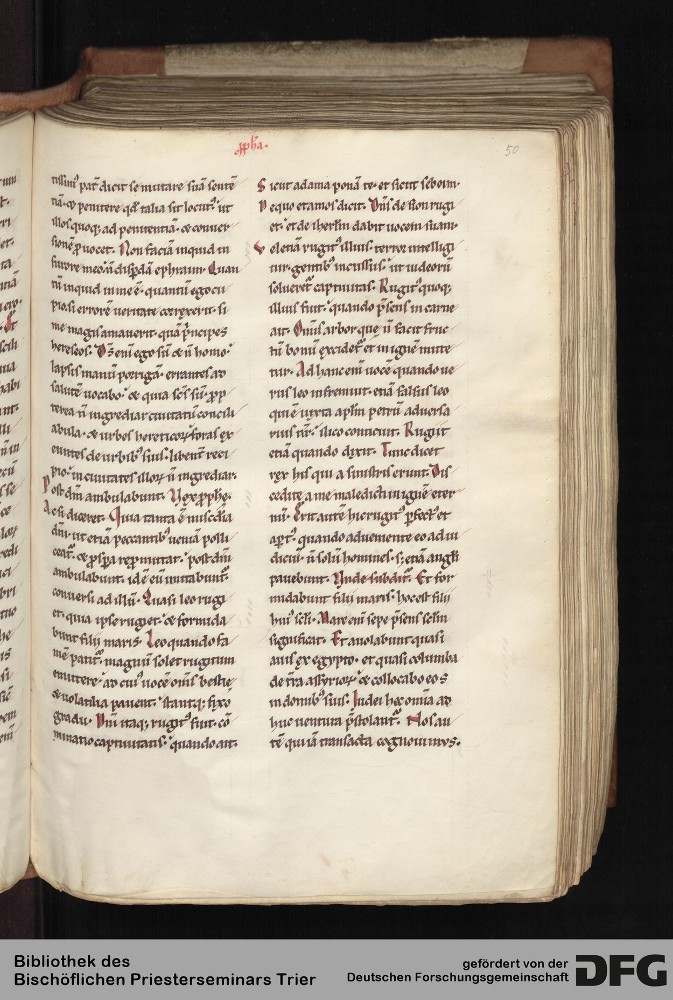 pph̄a.
50
tissimꝰ pat̄ dicit se mutare suā sentē
tiā. ⁊ penitere qd̄ talia sit locutꝰ. ut
illos quoq; ad penitentiā. ⁊ conuer
sionē ꝓuocet. Non faciā inquid in
furore meo. nō disꝑdā ephraim. Quan
tū inquid in me ē. quantū ego cu
pio. si errorē ueritate correxerit. si
me magis amauerit. quā p̄ncipes
hereseos. Ds̄ eni ego sū. ⁊ n̄ homo.
lapsis manū porrigā. errantes ad
salutē uocabo. ⁊ quia sc̄s sū. ꝓp
terea n̄ ingrediar ciuitatū concili
abula. ⁊ urbes hereticoꝝ. foras ex
euntes de urbibꝰ suis. libent̄ reci
pio. in ciuitates illoꝝ n̄ ingrediar.
Post dn̄m ambulabunt. Vox ꝓphe.
Ac si diceret. Quia tanta ē misc̄dia
dn̄i. ut etiā peccantibꝰ ueniā polli
ceat̄. ⁊ ꝓspera repromittat. post dn̄m
ambulabunt. idē eū imitabunt̄.
conuersi ad illū. Quasi leo rugi
et. quia ipse rugiet. ⁊ formida
bunt filij maris. Leo quando fa
mē patit̄. magnū solet rugitum
emittere. ad cuiꝰ uocē om̄s bestie
⁊ uolatilia pauent. stantq; fixo
gradu. Dn̄i itaq; rugitꝰ fuit. cō
minatio captiuitatis. quando ait.
Sicut adama ponā te. et sicut seboim.
Vequo et amos dicit. Dn̄s de sion rugi
et. et de ihrl̄m dabit uocem suam.
Volentiā rugitꝰ illius. terror intelligi
tur. gentibꝰ incussus. ut iudeorū
solueret captiuitas. Rugitꝰ quoq;
illius fuit. quando p̄sens in carne
ait. Om̄is arbor que n̄ facit fruc
tū bonū excidet̄. et in ignē mitte
tur. Ad hanc eni uocē quando ue
rus leo infremuit. etiā falsus leo
qui ē iuxta apl̄m petrū aduersa
rius nr̄. ilico conticuit. Rugiit
etiā quando dixit. Tunc dicet
rex his qui a sinistris erunt. Dis
cedite a me maledicti in ignē eter
nū. Erit autē hic rugitꝰ ꝑfectꝰ et
aptꝰ. quando adueniente eo ad iu
diciū. n̄ solū homines. s; etiā angl̄i
pauebunt. Vnde subdit̄. Et for
midabunt filii maris. hoc est filii
huiꝰ scl̄i. Mare eni sepe p̄sens sclm̄
significat. Et auolabunt quasi
auis ex egypto. et quasi columba
de t̄ra assyrioꝝ. ⁊ collocabo eos
in domibꝰ suis. Iudei hec om̄ia ad
huc uentura p̄stolant̄. Nos au
tē qui iā transacta cognouimus.
Bibliothek des
Bischöflichen Priesterseminars Trier
gefördert von der
Deutschen Forschungsgemeinschaft
DFG